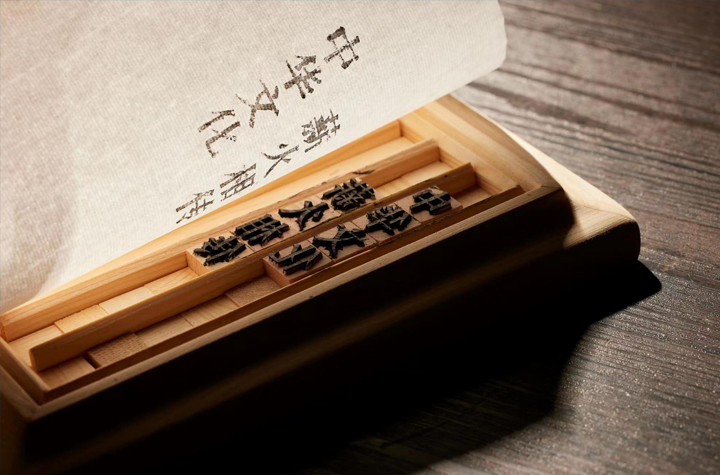 中华文化
薪火相传